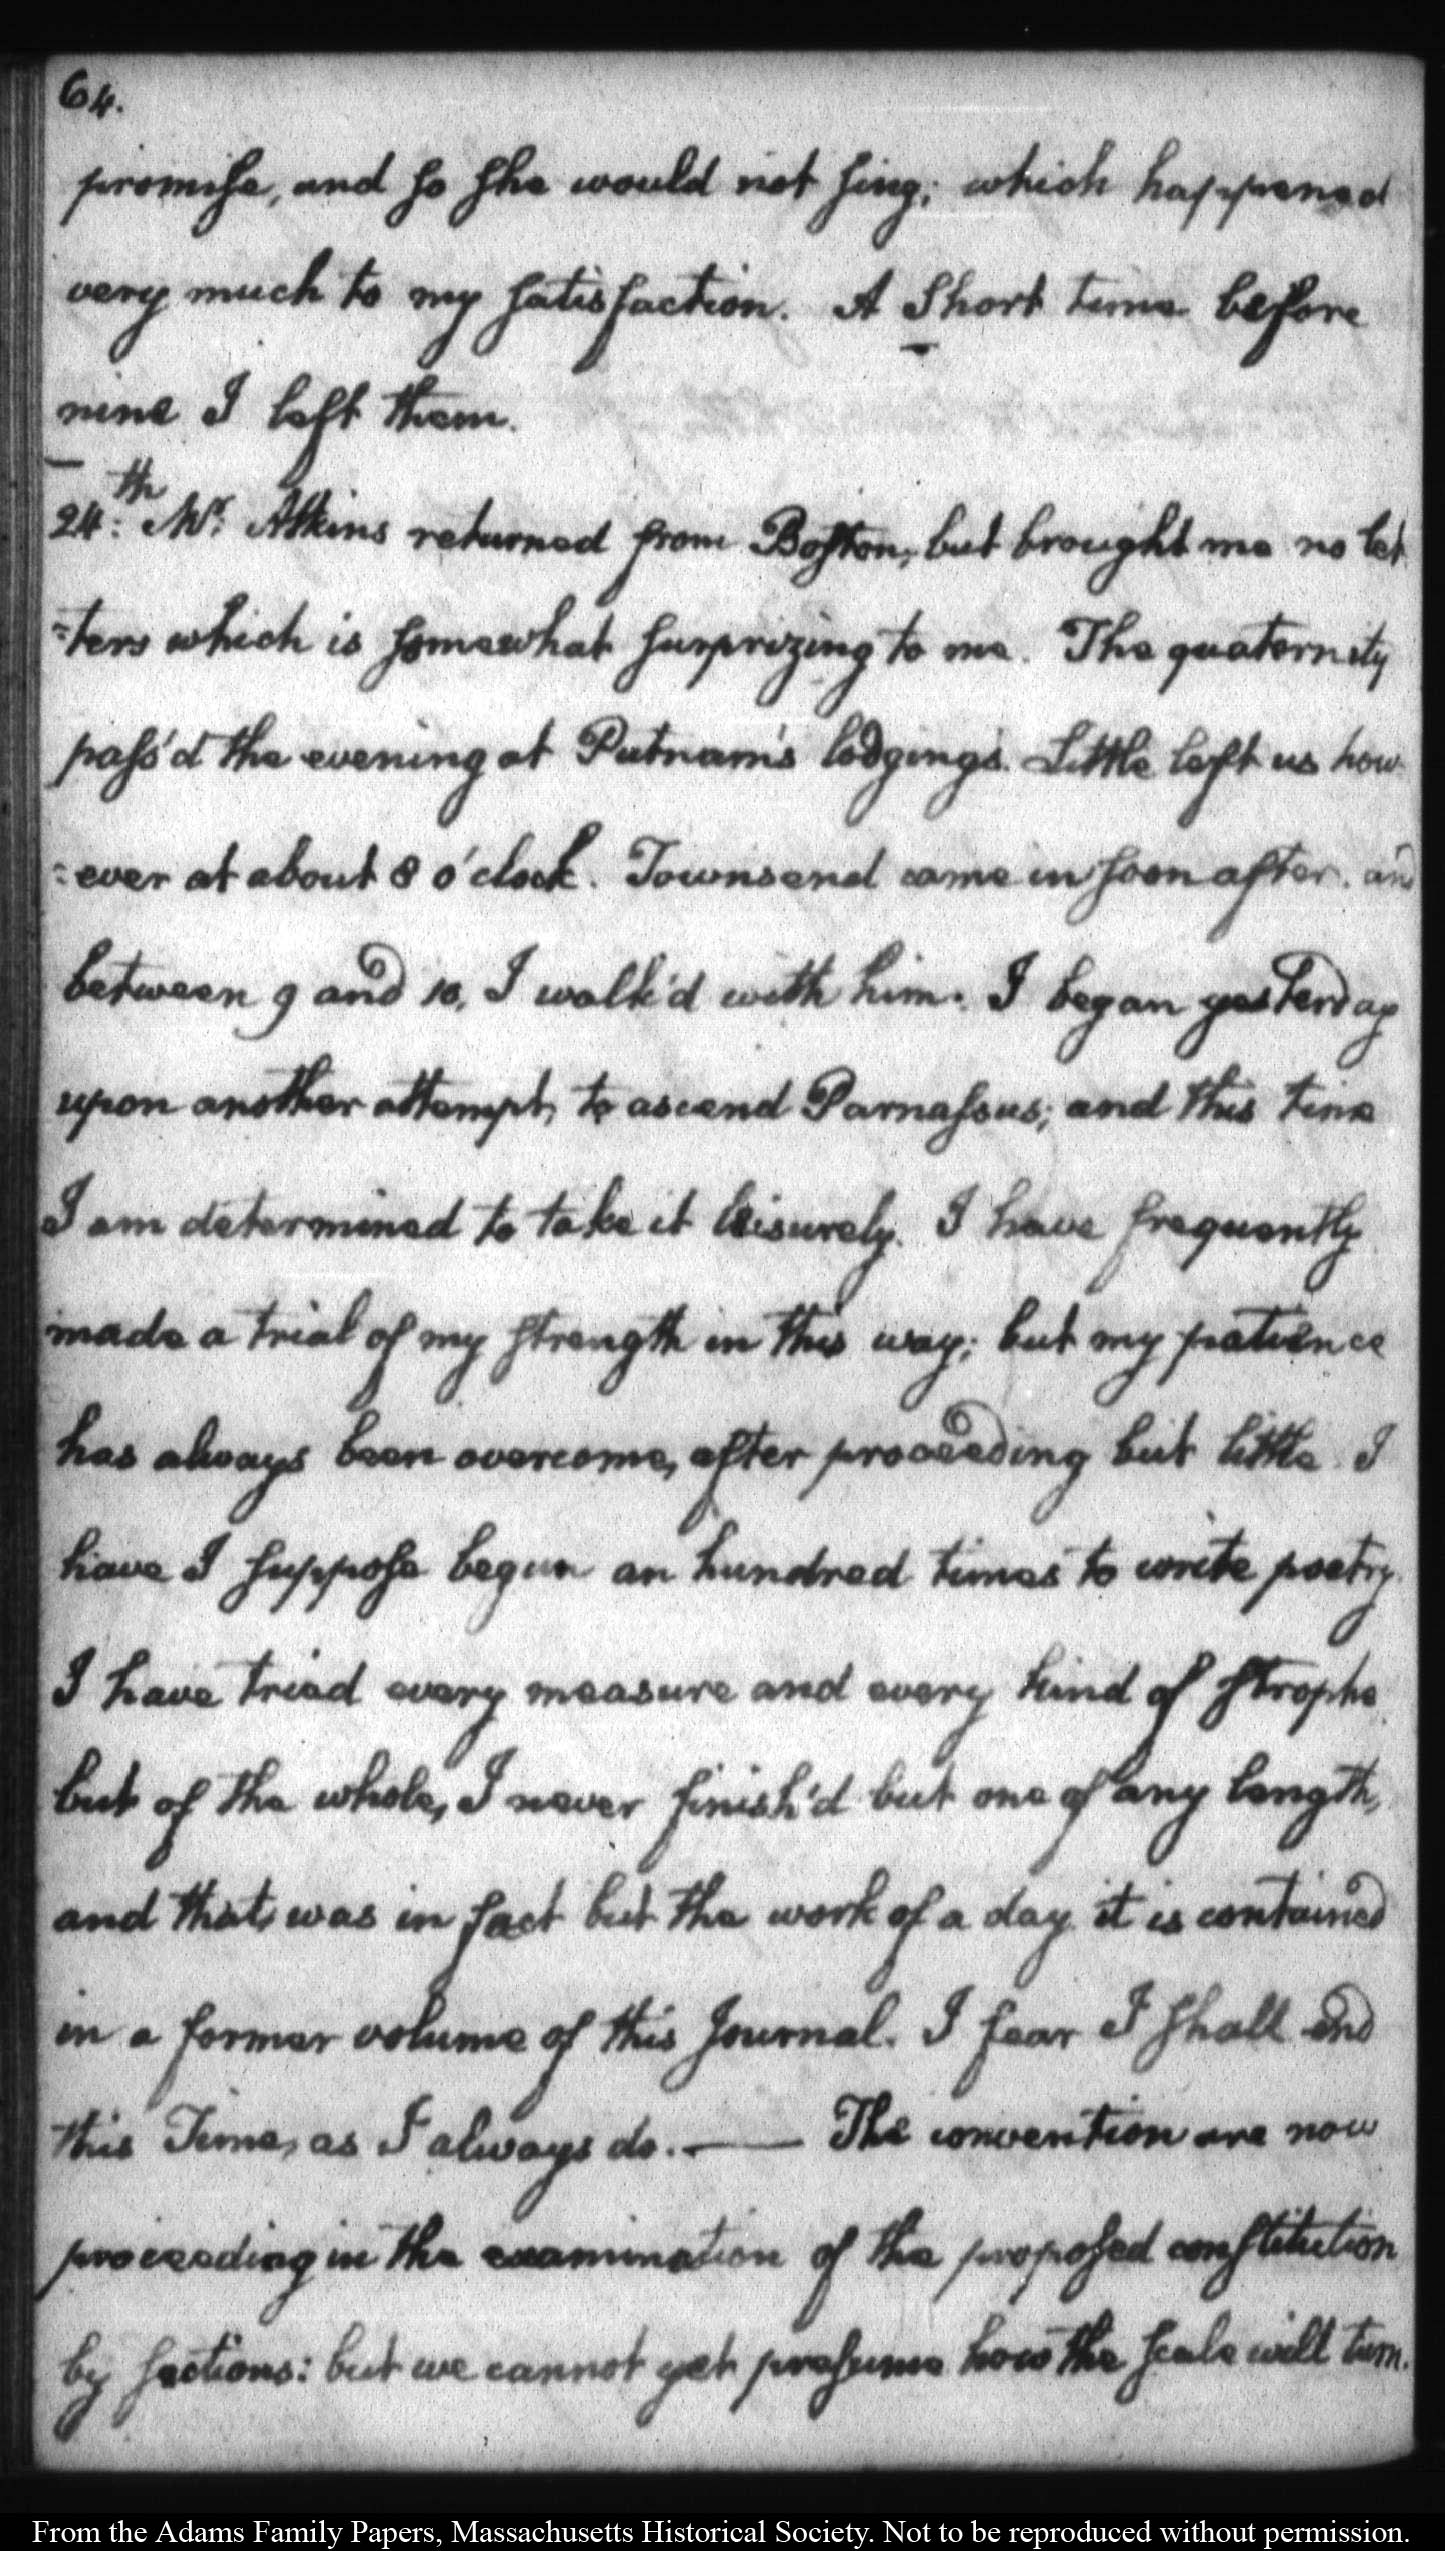 64.
promise, and so she would not sing; which happened
very much to my satisfaction. A short time before
nine I left them.
24:th Mr: Atkins returned from Boston, but brought me no let
=ters which is somewhat surprizing to me. The quaternity
pass'd the evening at Putnam's lodgings. Little left us how
=ever at about 8 o'clock. Townsend came in soon after. and
between 9 and 10, I walk'd with him. I began yesterday
upon another attempt, to ascend Parnassus; and this time
I am determined to take it leisurely. I have frequently
made a trial of my strength in this way; but my patience
has always been overcome, after proceeding but little I
have I suppose begun an hundred times to write poetry.
I have tried every measure and every kind of strophe
but of the whole, I never finish'd but one of any length,
and that, was in fact but the work of a day it is contained
in a former volume of this Journal. I fear I shall end
this Time, as I always do.—— The convention are now
proceeding in the examination of the proposed constitution
by sections: but we cannot yet presume how the scale will turn.
From the Adams Family Papers, Massachusetts Historical Society. Not to be reproduced without permission.